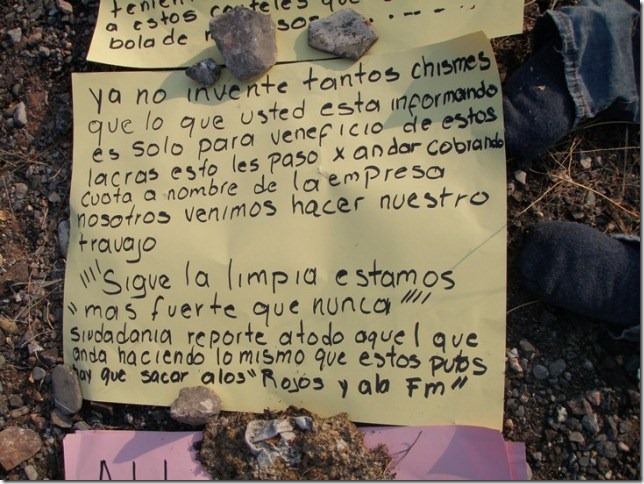 a estos carteles que
bola de
ya no invente tantos chismes
que lo que usted esta informando
es solo para veneficio de estos
lacras esto les paso x andar cobrando
cuota a nombre de la empresa
nosotros venimos hacer nuestro
travajo
"" Sigue la limpia estamos
" mas fuerte que nunca ""
siudadania reporte atodo aquel que
anda haciendo lo mismo que estos putos
hay que sacar alos "Rojos y ala Fm"